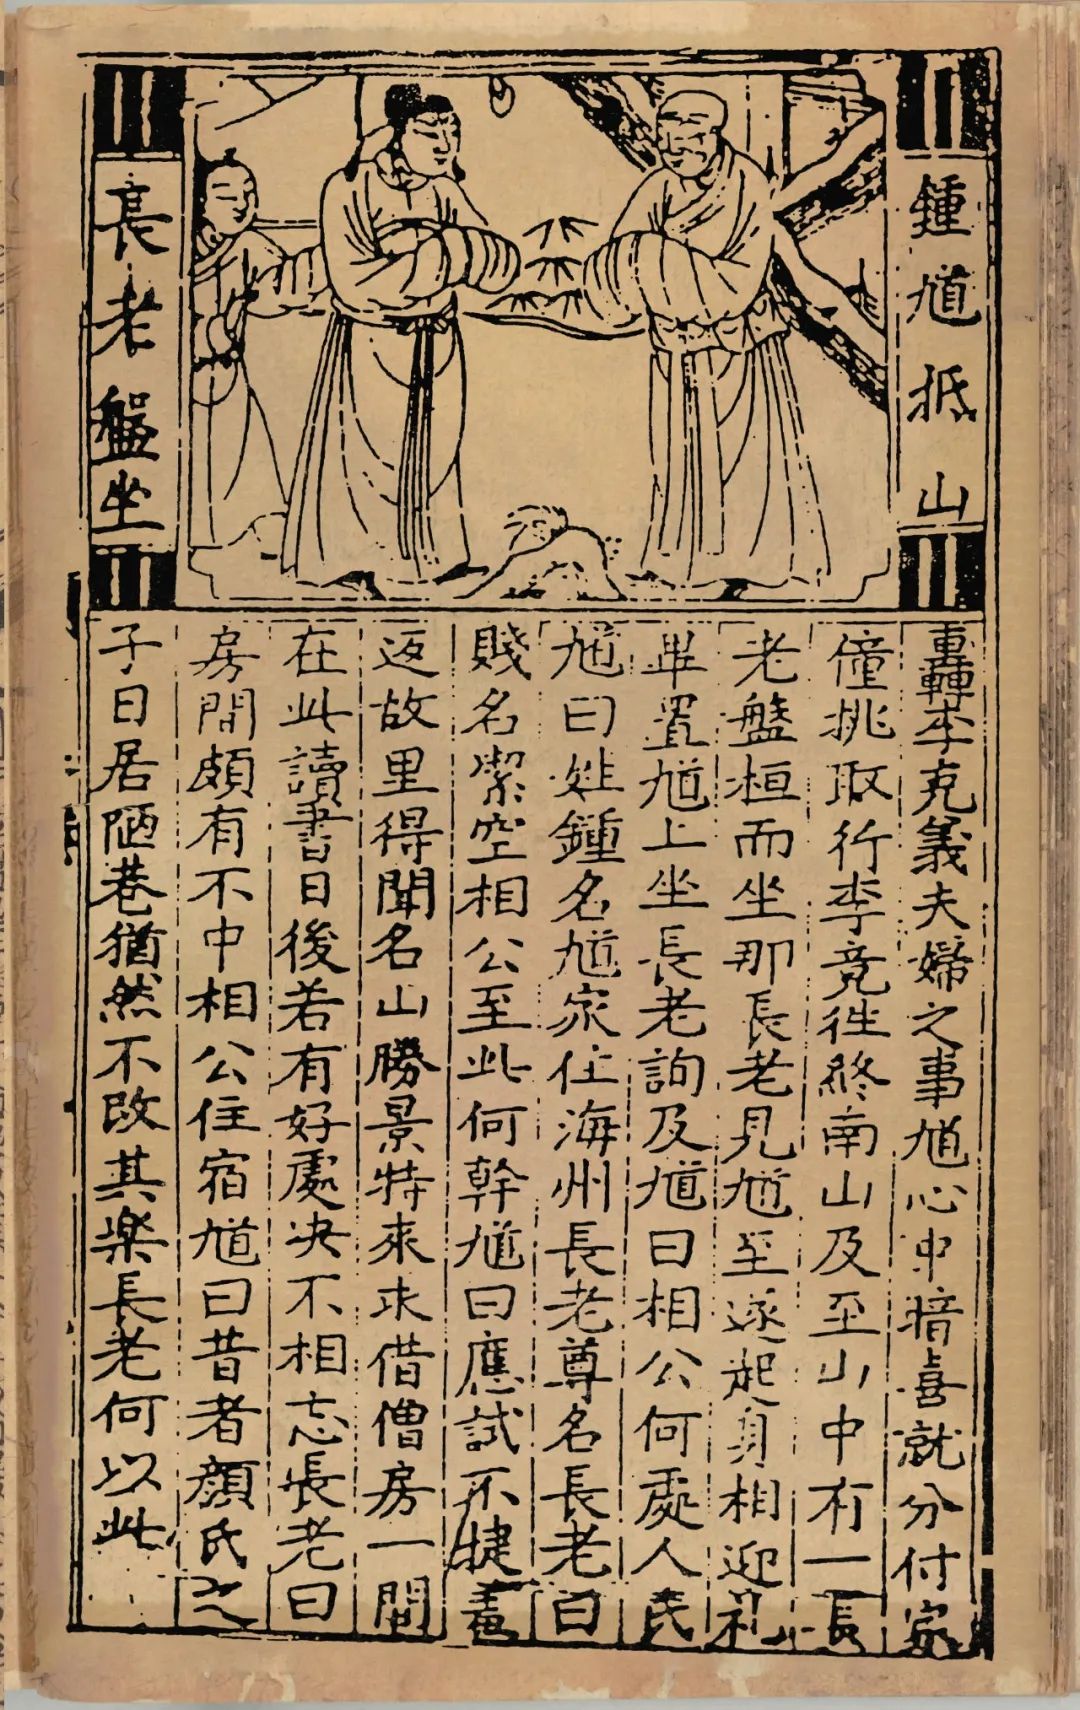 鍾馗抵山
長老盤坐
轟李克義夫婦之事馗心中暗喜就分付家
僮挑取行李竟徃終南山及至山中有一長
老盤桓而坐那長老見馗至遂起身相迎礼
畢置馗上坐長老詢及馗曰相公何處人氏
馗曰姓鍾名馗家住海州長老尊名長老曰
賤名潔空相公至此何幹馗曰應試不捷羞
返故里得聞名山勝景特來求借僧房一間
在此讀書日後若有好處决不相忘長老曰
房間頗有不中相公住宿馗曰昔者顔氏之
子曰居陋巷猶然不改其楽長老何以此